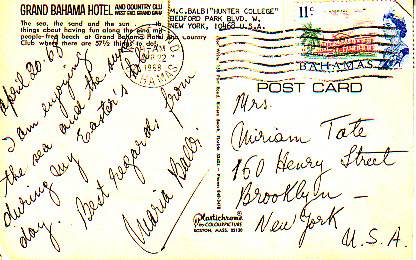 GRAND BAHAMA HOTEL AND COUNTRY CLUB
WEST END, GRAND BAHAMA
The sea, the sand and the sun
things about having fun along the
people-free beach at Grand Bahama Hotel and Country
Club where there are 57½ things to do!
M.C. BALBI "HUNTER COLLEGE"
BEDFORD PARK BLVD. W.
NEW YORK, 10468 U.S.A.
11c
BAHAMAS
AM
1968
April 20. 68
I am enjoying
the sea and the sun
during my Easter's holi
day. Best regards from
Maria Balbi.
POST CARD
Mrs.
Miriam Tate
150 Henry Street
Brooklyn -
New York
U.S.A.
Plastichrome
by COLOURPICTURE
BOSTON, MASS. 02130